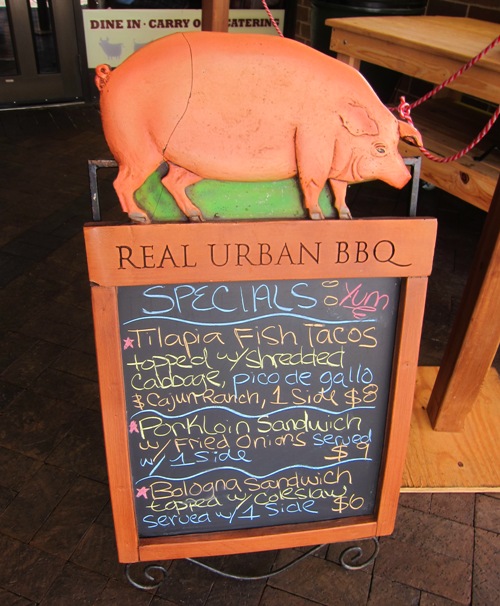 DINE IN · CARRY O CATERING
REAL URBAN BBQ
SPECIALS: Yum
Tilapia Fish Tacos
topped w/shredded
cabbage, pico de gallo
& Cajun Ranch, 1 side $8
Pork Loin Sandwich
w/ Fried Onions served
w/ 1 Side $9
Bologna Sandwich
topped w/ Coleslaw,
served w/ 1 Side $6